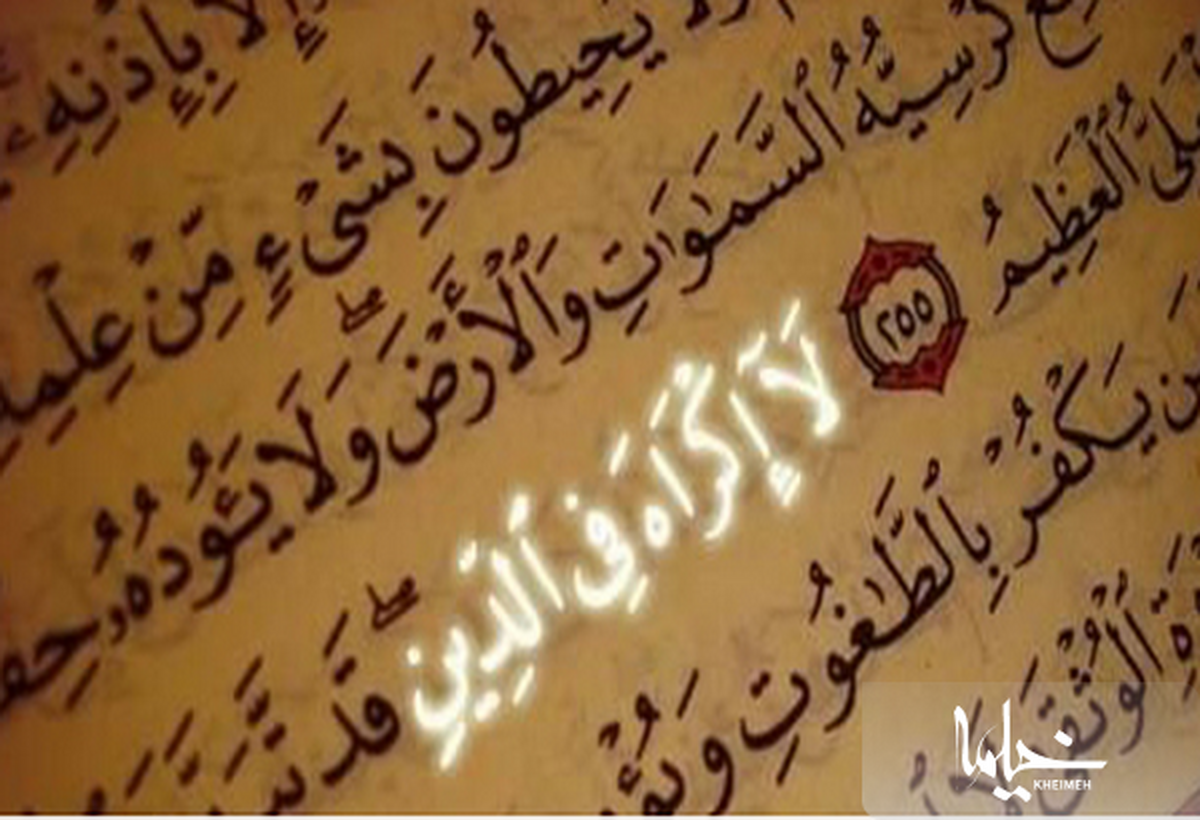 إِلَّا بِإِذْنِهِۦ
يُحِيطُونَ بِشَىْءٍ مِّنْ عِلْمِهِ
كُرْسِيُّهُ ٱلسَّمَٰوَٰتِ وَٱلْأَرْضَ ۖ وَلَا يَـُٔودُهُۥ
ٱلْعَظِيمُ ٢٥٥ لَآ إِكْرَاهَ فِى ٱلدِّينِ ۖ قَد
يَكْفُرْ بِٱلطَّٰغُوتِ
ٱلْوُثْقَىٰ
خیمه
KHEIMEH